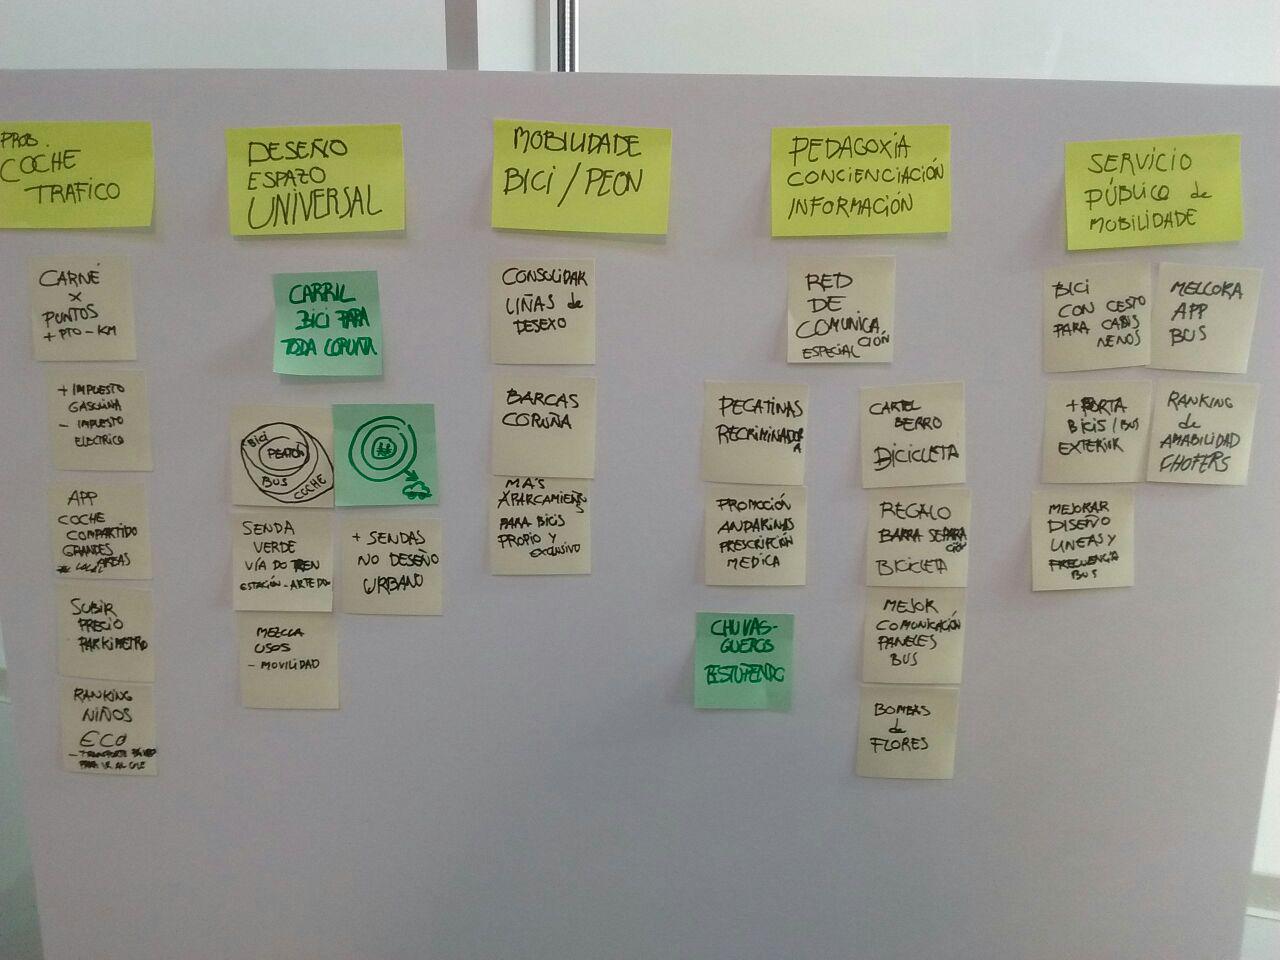 PROB.
COCHE
TRAFICO
CARNÉ
X
PUNTOS
+ PTO - KM
+ IMPUESTO
GASOLINA
- IMPUESTO
ELECTRICO
APP
COCHE
COMPARTIDO
GRANDES
AREAS
SUBIR
PRECIO
PARKIMETRO
RANKING
NIÑOS
ECO
PARA IR AL COLE
DESEÑO
ESPAZO
UNIVERSAL
CARRIL
BICI PARA
TODA CORUÑA
BICI
PEATÓN
BUS
COCHE
SENDA
VERDE
VÍA DO TREN
ESTACIÓN - ARTEIXO
+ SENDAS
NO DESEÑO
URBANO
MEZCLA
USOS
- MOVILIDAD
MOBILIDADE
BICI / PEON
CONSOLIDAR
LIÑAS de
DESEXO
BARCAS
CORUÑA
MÁS
APARCAMIENTOS
PARA BICIS
PROPIO Y
EXCLUSIVO
PEDAGOXÍA
CONCIENCIACIÓN
INFORMACIÓN
RED
DE
COMUNICA
CIÓN
ESPECIAL
PEGATINAS
RECRIMINADOR
A
PROMOCIÓN
ANDARINAS
PRESCRIPCIÓN
MEDICA
CHUVAS-
QUEIROS
BESTUPENDO
CARTEL
BERRO
BICICLETA
REGALO
BARRA SEPARA
CIÓN
BICICLETA
MEJOR
COMUNICACIÓN
PANELES
BUS
BOMBAS
de
FLORES
SERVICIO
PÚBLICO de
MOBILIDADE
BICI
CON CESTO
PARA CABIS
NENOS
MELLORA
APP
BUS
+ PORTA
BICIS / BUS
EXTERIOR
RANKING
de
AMABILIDAD
CHOFERS
MEJORAR
DISEÑO
LINEAS Y
FRECUENCIA
BUS